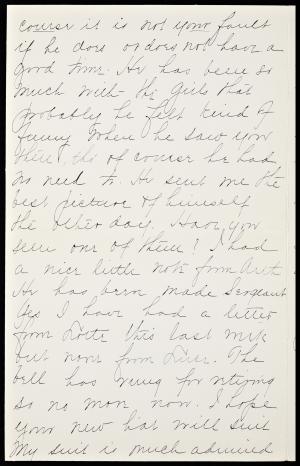 course it is not your fault
if he does or does not have a
good time. He has been so
much with the girls that
probably he felt kind of
funny when he saw you
there, tho of course he had
no need to. He sent me the
best picture of himself
the other day. Have you
seen one of them? I had
a nice little note from Art.
He has been made Sergeant
Yes I have had a letter
from Lotte this last week
but none from
The
bell has rung for retiring
so no more now. I hope
your new hat will suit
My suit is much admired